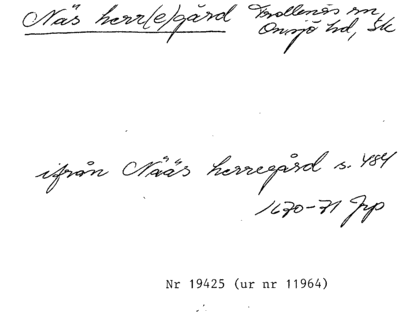 Näs herr(e)gård Trollenäs sn,
Onsjö hd, Sk
ifrån Nääs herregård s. 484
1670-71 Jrp
Nr 19425 (ur nr 11964)